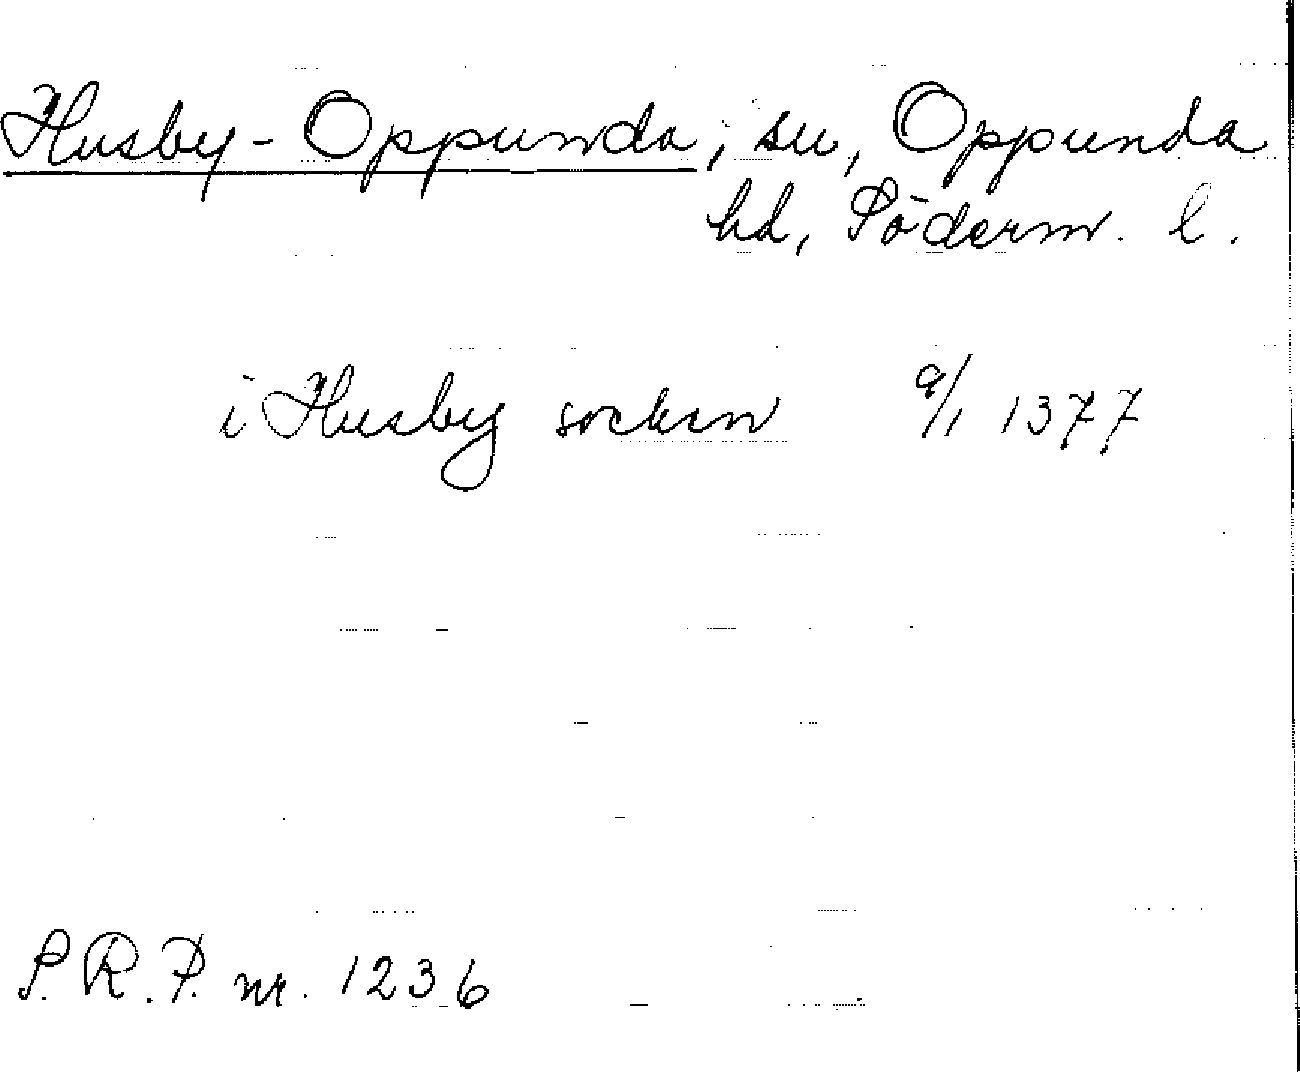 Husby-Oppunda, sn, Oppunda
hd, Söderm. l.
i Husby socken 9/1 1377
S.R.P. nr. 1236